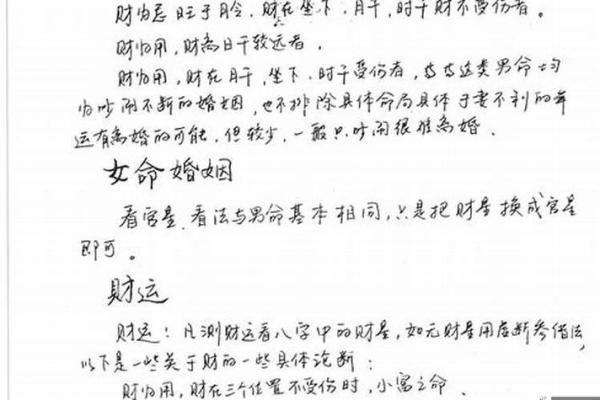 财为忌旺于月令,财在坐下、月干,时干财不受伤者。
财为用,财离日干较远者,
财为用,财在月干,坐下、时干受伤者,古古这类男命均
为吵闹不断的婚姻,也不排除具体命局具体于妻不利的年
运有离婚的可能,但较少,一般只吵闹很难离婚.
女命婚姻
看官星,看法与男命基本相同,只是把财星换成官星
即可。
财运
财运:凡测财运看八字中的财星,如无财星用虚断参借法,
以下是一些关于财的一些具体论断:
财为用,财在三个位置不受伤时,小富之命.